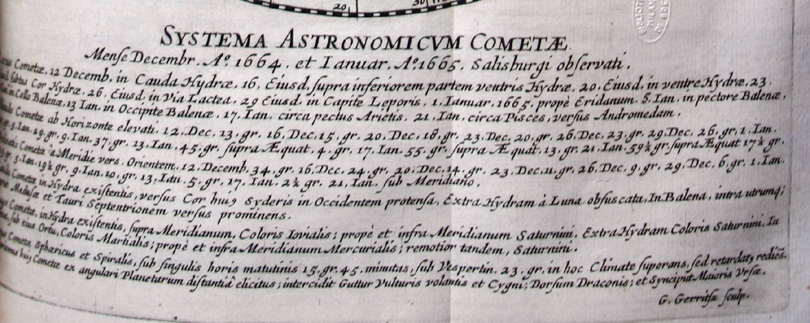 20.
30
SYSTEMA ASTRONOMICVM COMETÆ
Mense Decembr. Aº. 1664. et Ianuar. Aº 1665. Salisburgi observati.
Cometæ, 12 Decemb. in Cauda Hydræ, 16. Eiusd. supra inferiorem partem ventris Hydræ, 20. Eiusd. in ventre Hydræ, 23.
Cor Hydræ, 26. Eiusd. in Via Lactea, 29 Eiusd. in Capite Leporis, 1. Ianuar. 1665. propè Eridanum. 5. Ian. in pectore Balenæ,
in Collo Balenæ, 13 Ian. in Occipite Balenæ, 17. Ian. circa pectus Arietis, 21. Ian. circa Pisces, versus Andromedam.
Cometæ ab Horizonte elevati, 12. Dec. 13. gr. 16. Dec. 15. gr. 20. Dec. 18. gr. 23. Dec. 20. gr. 26. Dec. 23. gr. 29. Dec. 26. gr. 1. Ian.
gr. 9. Ian. 37. gr. 13. Ian. 45. gr. supra Æquat. 4. gr. 17. Ian. 55. gr. supra Æquat. 13. gr. 21. Ian. 59½ gr. supra Æquat 17½ gr.
Cometæ a Meridie vers. Orientem, 12. Decemb. 34. gr. 16. Dec. 24. gr. 20. Dec. 14. gr. 23. Dec. 11. gr. 26. Dec. 9. gr. 29. Dec. 6. gr. 1. Ian.
gr. 9. Ian. 10. gr. 13. Ian. 5. gr. 17. Ian. 2½ gr. 21. Ian. sub Meridiano.
in Hydra existentis, versus Cor huj9 Syderis in Occidentem protensa, Extra Hydram à Luna obfuscata, In Balena, intra utrumq;
Medusæ et Tauri Septentrionem versus prominens.
Cometæ, in Hydra existentis, supra Meridianum, Coloris Iovialis; propè et infra Meridianum Saturnini, Extra Hydram Coloris Saturnini. In
sub eius Ortu, Coloris Martialis; propè et infra Meridianum Mercurialis; remotior tandem, Saturnini.
Cometæ Sphæricus et Spiralis, sub singulis horis matutinis 15. gr. 45. minutas, sub Vespertin. 23. gr. in hoc Climate superans, sed retardatq
huj9 Cometæ ex angulari Planetarum distantia elicitus; intercidit Guttur Vulturis volantis et Cygni; Dorsum Draconis; et Synciput Maioris Vrsæ.
G. Gerritsz sculp.